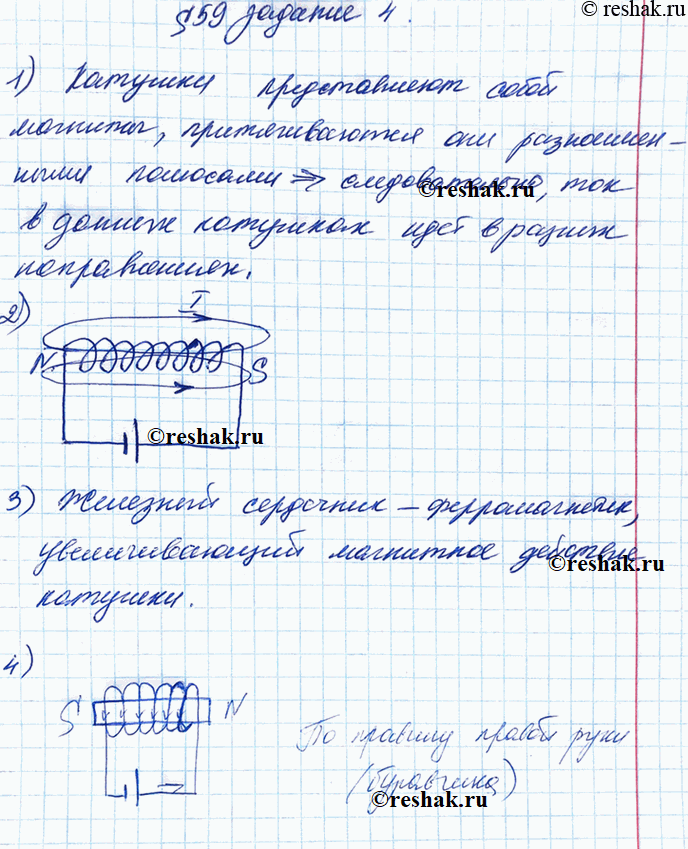 © reshak.ru
§59 задание 4.
1) Катушки представляют собой
магниты, притягиваются они разноимен-
ными полюсами ⇒ следовательно, ток
© reshak.ru
в данных катушках идёт в разных
направлениях.
2) I
N S
© reshak.ru
3) Железный сердечник – ферромагнетик,
увеличивающий магнитное действие
© reshak.ru
катушки.
4)
S N
По правилу правой руки
(буравчика)
© reshak.ru